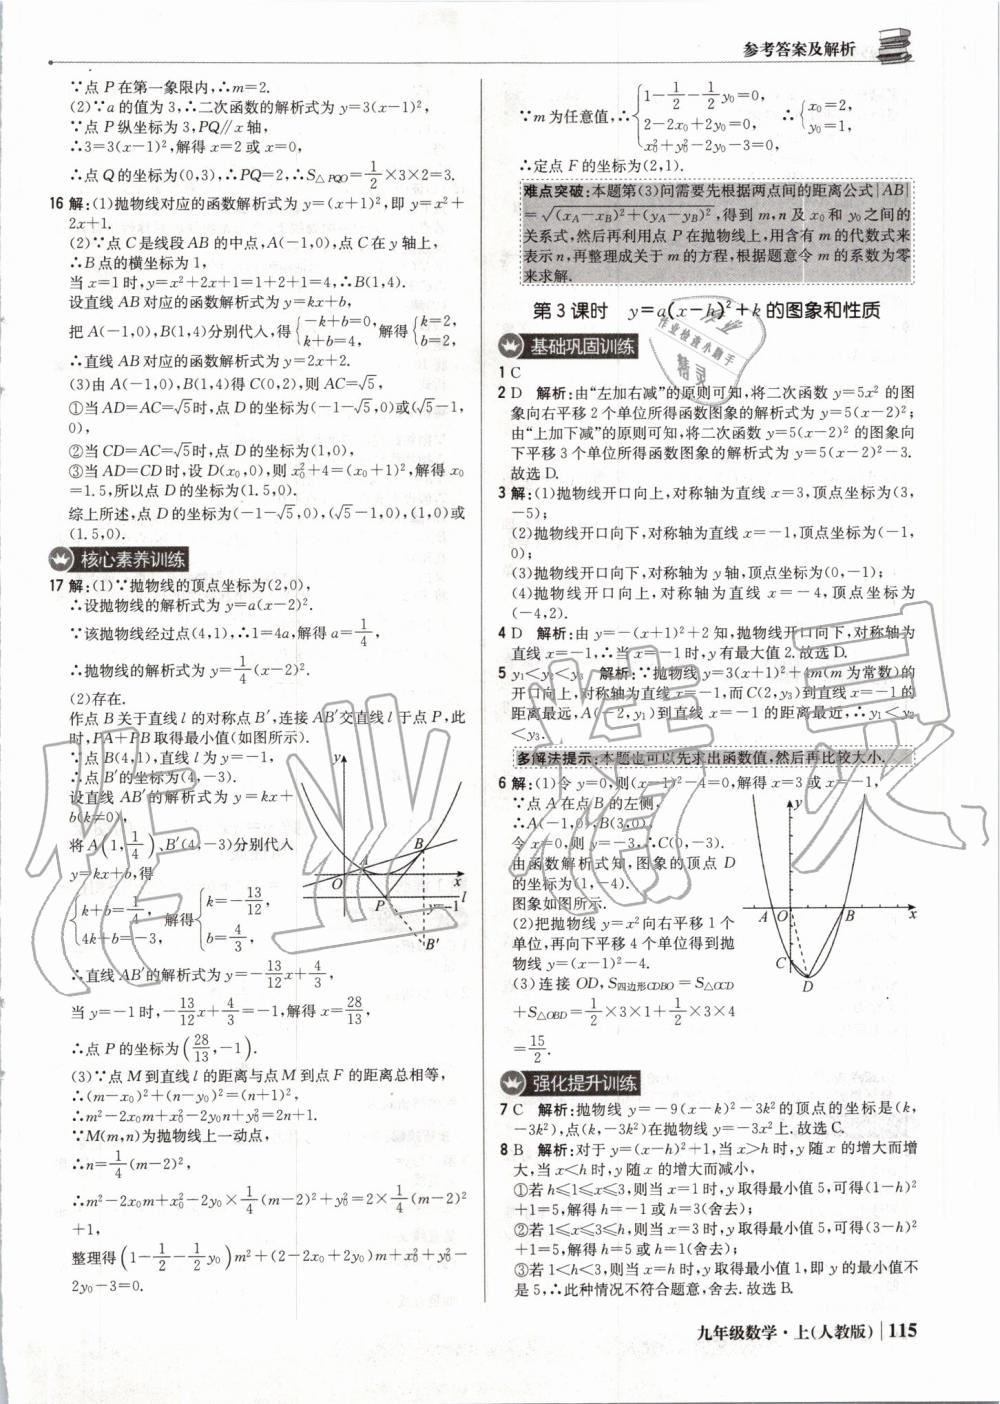 参考答案及解析
∵点 P 在第一象限内,∴m=2.
(2)∵a 的值为 3,∴二次函数的解析式为 y=3(x-1)²,
∵点 P 纵坐标为 3,PQ∥x 轴,
∴3=3(x-1)²,解得 x=2 或 x=0,
∴点 Q 的坐标为(0,3),∴PQ=2,∴S△PQO=1/2×3×2=3.
16 解:(1)抛物线对应的函数解析式为 y=(x+1)²,即 y=x²+
2x+1.
(2)∵点 C 是线段 AB 的中点,A(-1,0),点 C 在 y 轴上,
∴B 点的横坐标为 1,
当 x=1 时,y=x²+2x+1=1+2+1=4,∴B(1,4).
设直线 AB 对应的函数解析式为 y=kx+b,
把 A(-1,0),B(1,4)分别代入,得{-k+b=0, k+b=4, 解得{k=2, b=2,
∴直线 AB 对应的函数解析式为 y=2x+2.
(3)由 A(-1,0),B(1,4)得 C(0,2),则 AC=√5,
①当 AD=AC=√5时,点 D 的坐标为(-1-√5,0)或(√5-1,
0),
②当 CD=AC=√5时,点 D 的坐标为(1,0),
③当 AD=CD 时,设 D(x₀,0),则 x₀²+4=(x₀+1)²,解得 x₀
=1.5,所以点 D 的坐标为(1.5,0).
综上所述,点 D 的坐标为(-1-√5,0),(√5-1,0),(1,0)或
(1.5,0).
核心素养训练
17 解:(1)∵抛物线的顶点坐标为(2,0),
∴设抛物线的解析式为 y=a(x-2)².
∵该抛物线经过点(4,1),∴1=4a,解得 a=1/4,
∴抛物线的解析式为 y=1/4(x-2)².
(2)存在.
作点 B 关于直线 l 的对称点 B′,连接 AB′交直线 l 于点 P,此
时,PA+PB 取得最小值(如图所示).
∵点 B(4,1),直线 l 为 y=-1,
∴点 B′的坐标为(4,-3).
设直线 AB′的解析式为 y=kx+
b(k≠0),
将 A(1,1/4)、B′(4,-3)分别代入
y=kx+b,得
{k+b=1/4, 4k+b=-3, 解得{k=-13/12, b=4/3,
y
A
B
O
x
P
l
y=-1
B′
∴直线 AB′的解析式为 y=-13/12x+4/3,
当 y=-1 时,-13/12x+4/3=-1,解得 x=28/13,
∴点 P 的坐标为(28/13,-1).
(3)∵点 M 到直线 l 的距离与点 M 到点 F 的距离总相等,
∴(m-x₀)²+(n-y₀)²=(n+1)²,
∴m²-2x₀m+x₀²-2y₀n+y₀²=2n+1.
∵M(m,n)为抛物线上一动点,
∴n=1/4(m-2)²,
∴m²-2x₀m+x₀²-2y₀×1/4(m-2)²+y₀²=2×1/4(m-2)²
+1,
整理得(1-1/2-1/2y₀)m²+(2-2x₀+2y₀)m+x₀²+y₀²-
2y₀-3=0.
∵m 为任意值,∴{1-1/2-1/2y₀=0, 2-2x₀+2y₀=0, x₀²+y₀²-2y₀-3=0, ∴{x₀=2, y₀=1,
∴定点 F 的坐标为(2,1).
难点突破:本题第(3)问需要先根据两点间的距离公式|AB|
=√(x_A-x_B)²+(y_A-y_B)²,得到 m,n 及 x₀ 和 y₀ 之间的
关系式,然后再利用点 P 在抛物线上,用含有 m 的代数式来
表示 n,再整理成关于 m 的方程,根据题意令 m 的系数为零
来求解.
第 3 课时 y=a(x-h)²+k 的图象和性质
基础巩固训练
1 C
2 D 解析:由“左加右减”的原则可知,将二次函数 y=5x² 的图
象向右平移 2 个单位所得函数图象的解析式为 y=5(x-2)²;
由“上加下减”的原则可知,将二次函数 y=5(x-2)² 的图象向
下平移 3 个单位所得函数图象的解析式为 y=5(x-2)²-3.
故选 D.
3 解:(1)抛物线开口向上,对称轴为直线 x=3,顶点坐标为(3,
-5);
(2)抛物线开口向下,对称轴为直线 x=-1,顶点坐标为(-1,
0);
(3)抛物线开口向下,对称轴为 y 轴,顶点坐标为(0,-1);
(4)抛物线开口向上,对称轴为直线 x=-4,顶点坐标为
(-4,2).
4 D 解析:由 y=-(x+1)²+2 知,抛物线开口向下,对称轴为
直线 x=-1,∴当 x=-1 时,y 有最大值 2.故选 D.
5 y₁<y₂<y₃ 解析:∵抛物线 y=3(x+1)²+4m(m 为常数)的
开口向上,对称轴为直线 x=-1,而 C(2,y₃)到直线 x=-1 的
距离最远,A(-2,y₁)到直线 x=-1 的距离最近,∴y₁<y₂
<y₃.
多解法提示:本题也可以先求出函数值,然后再比较大小.
6 解:(1)令 y=0,则(x-1)²-4=0,解得 x=3 或 x=-1,
∵点 A 在点 B 的左侧,
∴A(-1,0),B(3,0).
令 x=0,则 y=-3,∴C(0,-3).
由函数解析式知,图象的顶点 D
的坐标为(1,-4).
图象如图所示.
(2)把抛物线 y=x²向右平移 1 个
单位,再向下平移 4 个单位得到抛
物线 y=(x-1)²-4.
(3)连接 OD,S四边形CDBO=S△OCD
+S△OBD=1/2×3×1+1/2×3×4
=15/2.
y
A
O
B
x
C
D
强化提升训练
7 C 解析:抛物线 y=-9(x-k)²-3k²的顶点的坐标是(k,
-3k²),点(k,-3k²)在抛物线 y=-3x²上.故选 C.
8 B 解析:对于 y=(x-h)²+1,当 x>h 时,y 随 x 的增大而增
大,当 x<h 时,y 随 x 的增大而减小,
①若 h≤1≤x≤3,则当 x=1 时,y 取得最小值 5,可得(1-h)²
+1=5,解得 h=-1 或 h=3(舍去);
②若 1≤x≤3≤h,则当 x=3 时,y 取得最小值 5,可得(3-h)²
+1=5,解得 h=5 或 h=1(舍去);
③若 1<h<3,则当 x=h 时,y 取得最小值 1,即 y 的最小值不
是 5,∴此种情况不符合题意,舍去.故选 B.
九年级数学·上(人教版) 115
作业精灵
作业检查小助手
精灵